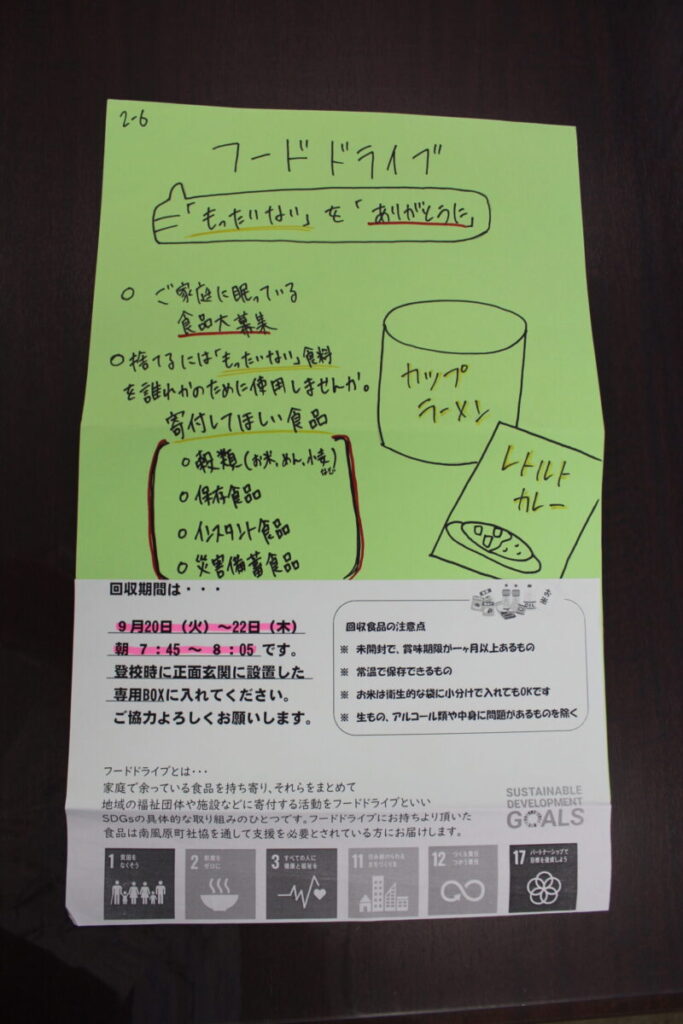 2-6
フードドライブ
「もったいない」を「ありがとうに」
○ ご家庭に眠っている
食品大募集
○ 捨てるには「もったいない」食料
を誰れかのために使用しませんか。
寄付してほしい食品
○ 穀類(お米,めん,小麦など)
○ 保存食品
○ インスタント食品
○ 災害備蓄食品
カップ
ラーメン
レトルト
カレー
回収期間は・・・
9月20日(火)~22日(木)
朝 7:45 ~ 8:05 です。
登校時に正面玄関に設置した
専用BOXに入れてください。
ご協力よろしくお願いします。
回収食品の注意点
※ 未開封で、賞味期限が一ヶ月以上あるもの
※ 常温で保存できるもの
※ お米は衛生的な袋に小分けで入れてもOKです
※ 生もの、アルコール類や中身に問題があるものを除く
フードドライブとは・・・
家庭で余っている食品を持ち寄り、それらをまとめて
地域の福祉団体や施設などに寄付する活動をフードドライブといい
SDGsの具体的な取り組みのひとつです。フードドライブにお持ちより頂いた
食品は南風原町社協を通して支援を必要とされている方にお届けします。
SUSTAINABLE
DEVELOPMENT
GOALS
1 貧困を
なくそう
2 飢餓を
ゼロに
3 すべての人に
健康と福祉を
11 住み続けられる
まちづくりを
12 つくる責任
つかう責任
17 パートナーシップで
目標を達成しよう